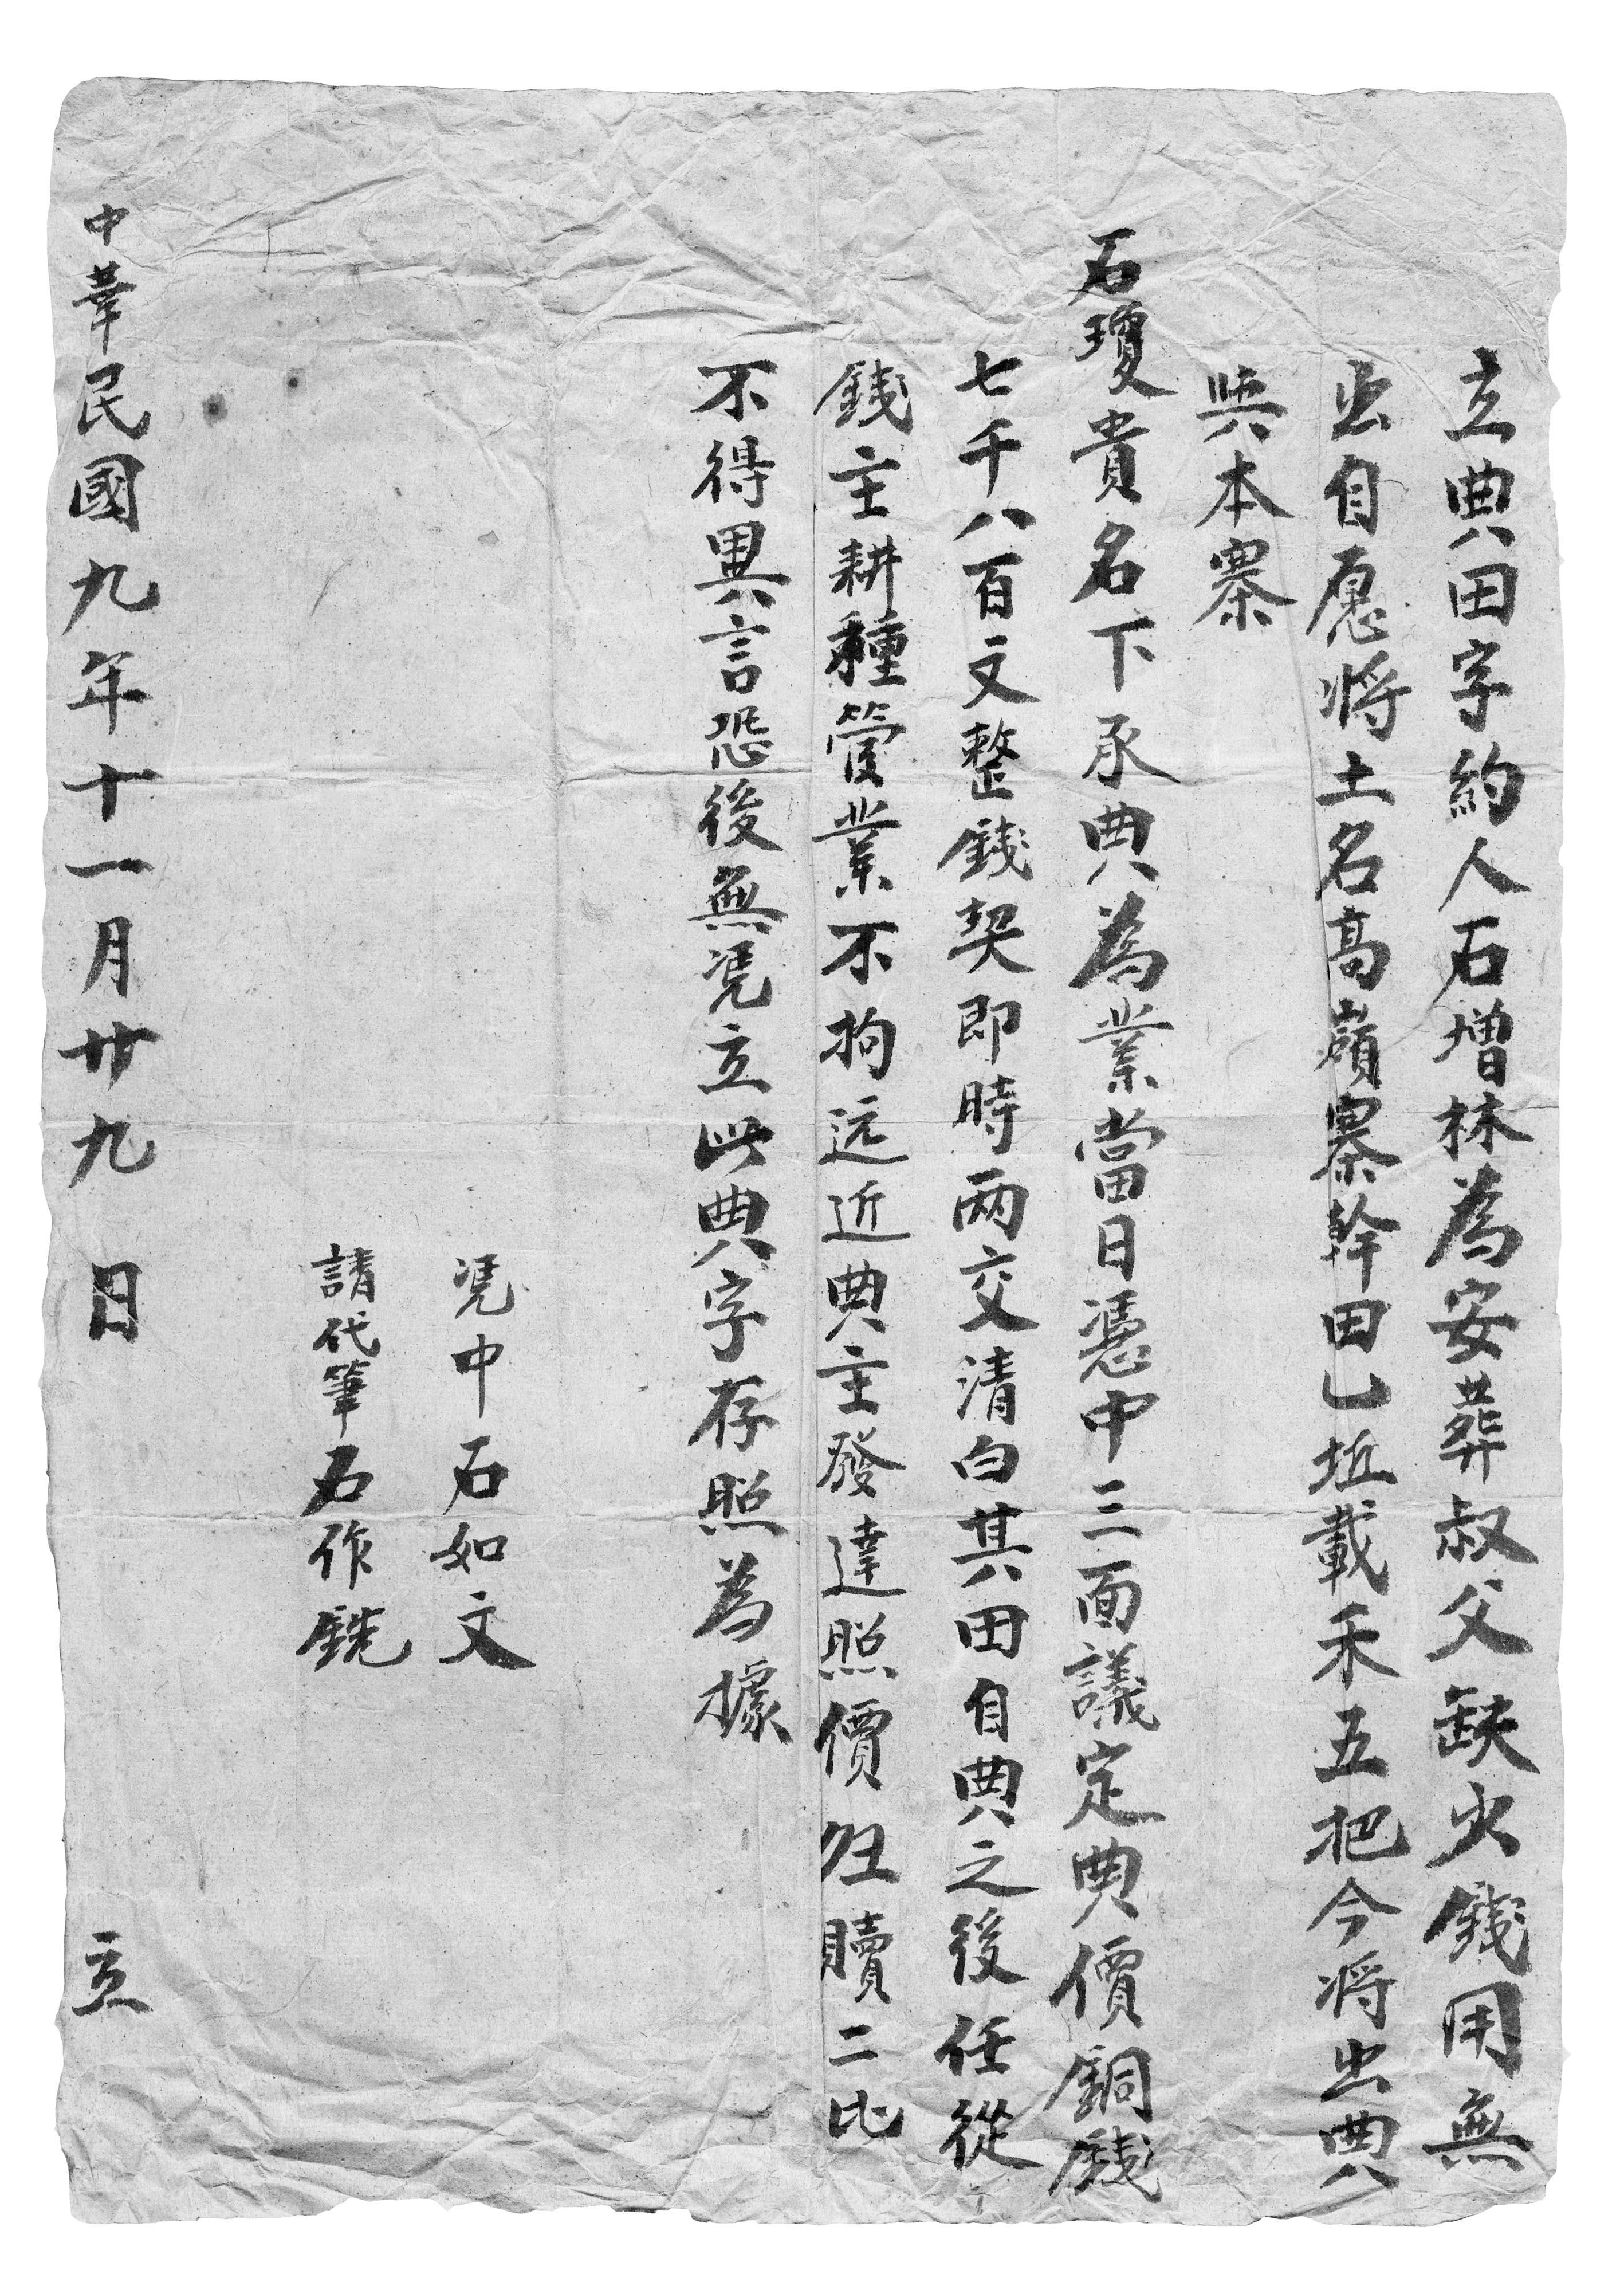 立典田字約人石增林為安葬叔父缺少錢用無
出自愿將土名高嶺寨幹田乙坵載禾五把今將出典
與本寨
石瓊貴名下承典為業當日憑中三面議定典價銅錢
七千八百文整錢契即時两交清白其田自典之後任從
錢主耕種管業不拘远近典主發達照價归贖二比
不得異言恐後無凭立此典字存照為據
凭中石如文
請代筆石作銑
中華民國九年十一月廿九日立